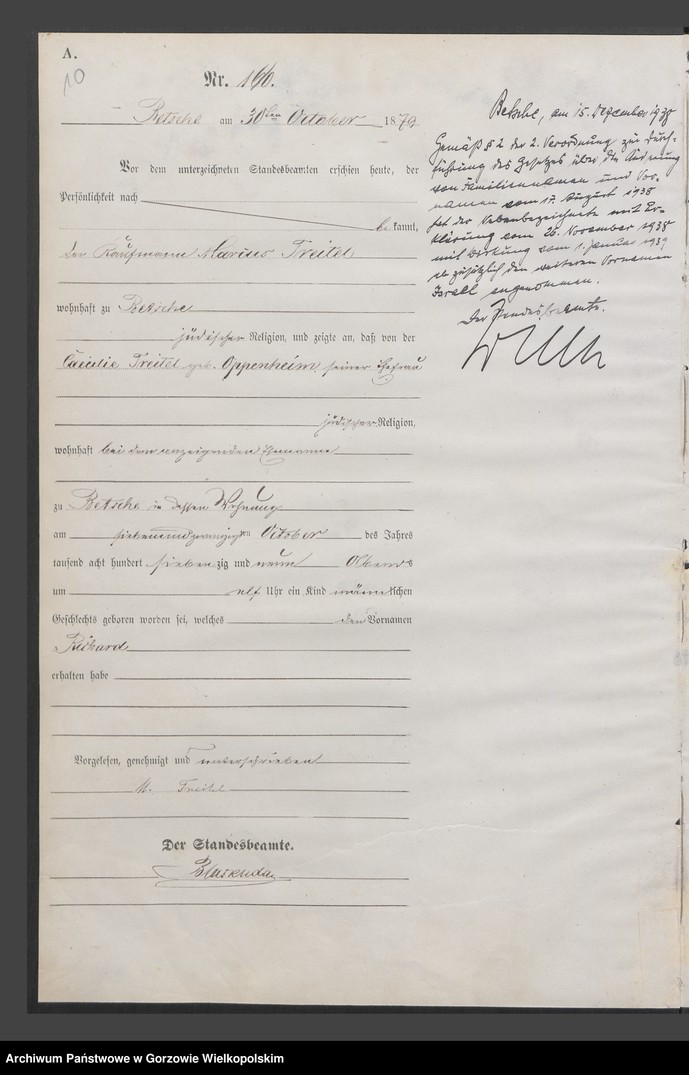 A.
10
Nr. 166.
Betsche am 30ten October 1879
Vor dem unterzeichneten Standesbeamten erschien heute, der
Persönlichkeit nach
bekannt,
der Kaufmann Marcus Treitel
wohnhaft zu Betsche
jüdischer Religion, und zeigte an, daß von der
Caecilie Treitel geb. Oppenheim, seiner Ehefrau
jüdischer Religion,
wohnhaft bei dem anzeigenden Ehemanne
zu Betsche in dessen Wohnung
am siebenundzwanzigsten October des Jahres
tausend acht hundert siebenzig und neun Abends
um elf Uhr ein Kind männlichen
Geschlechts geboren worden sei, welches den Vornamen
Richard
erhalten habe
Vorgelesen, genehmigt und unterschrieben
M. Treitel
Der Standesbeamte.
Betsche, am 15. Dezember 1938
Gemäß § 2 der 2. Verordnung zur Durch-
führung des Gesetzes über die Änderung
von Familiennamen und Vor-
namen vom 17. August 1938
hat der Nebenbezeichnete mit Er-
klärung vom 26. November 1938
mit Wirkung vom 1. Januar 1939
ab zusätzlich den weiteren Vornamen
Israel angenommen.
Der Standesbeamte.
Archiwum Państwowe w Gorzowie Wielkopolskim